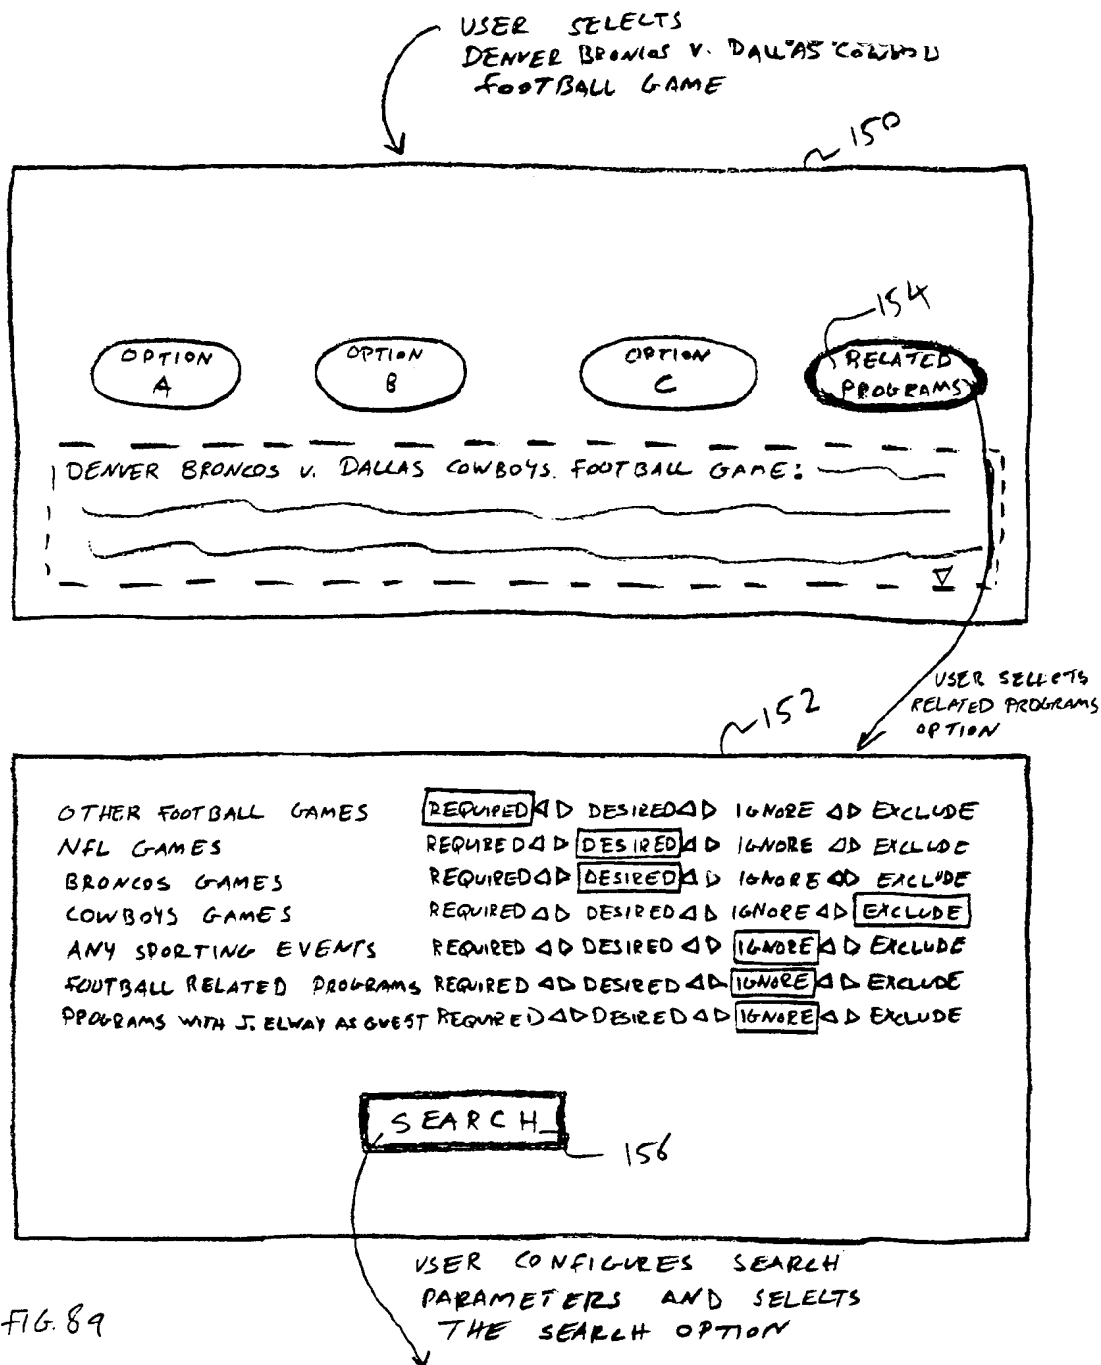 USER SELECTS
DENVER BRONCOS V. DALLAS COWBOY
FOOTBALL GAME
150
154
OPTION A
OPTION B
OPTION C
RELATED PROGRAMS
DENVER BRONCOS V. DALLAS COWBOYS. FOOTBALL GAME:
USER SELECTS
RELATED PROGRAMS
OPTION
152
OTHER FOOTBALL GAMES REQUIRED ◁ ▷ DESIRED ◁ ▷ IGNORE ◁ ▷ EXCLUDE
NFL GAMES REQUIRED ◁ ▷ DESIRED ◁ ▷ IGNORE ◁ ▷ EXCLUDE
BRONCOS GAMES REQUIRED ◁ ▷ DESIRED ◁ ▷ IGNORE ◁ ▷ EXCLUDE
COWBOYS GAMES REQUIRED ◁ ▷ DESIRED ◁ ▷ IGNORE ◁ ▷ EXCLUDE
ANY SPORTING EVENTS REQUIRED ◁ ▷ DESIRED ◁ ▷ IGNORE ◁ ▷ EXCLUDE
FOOTBALL RELATED PROGRAMS REQUIRED ◁ ▷ DESIRED ◁ ▷ IGNORE ◁ ▷ EXCLUDE
PROGRAMS WITH J. ELWAY AS GUEST REQUIRED ◁ ▷ DESIRED ◁ ▷ IGNORE ◁ ▷ EXCLUDE
SEARCH
156
USER CONFIGURES SEARCH
PARAMETERS AND SELECTS
THE SEARCH OPTION
FIG. 8a